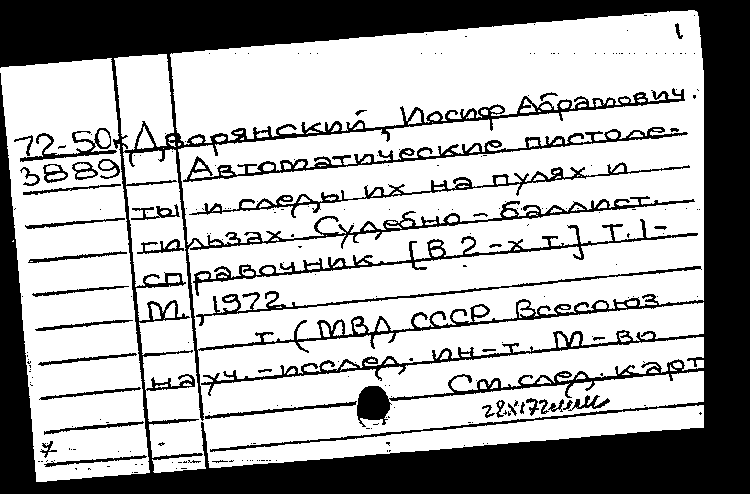 1
72-50к Дворянский, Иосиф Абрамович.
3889 Автоматические пистоле-
ты и следы их на пулях и
гильзах. Судебно-баллист.
справочник. [В 2-х т.]. Т. 1-
М., 1972.
т. (МВД СССР. Всесоюз
науч.-исслед. ин-т. М-во
См. след. карт